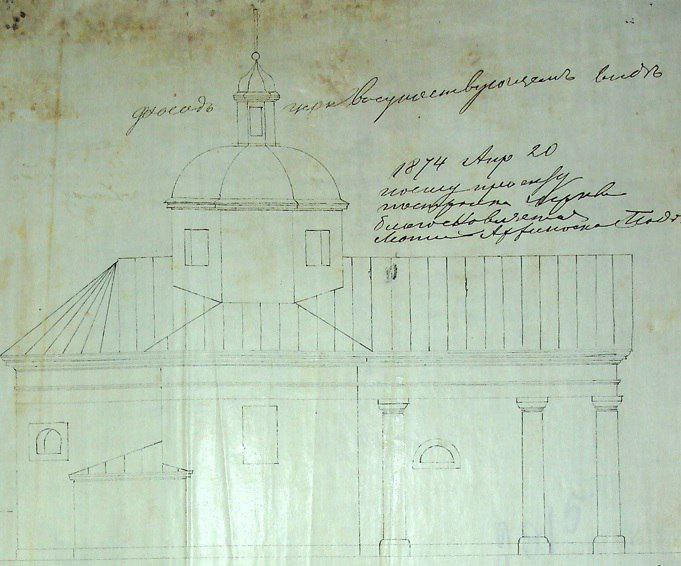 фасадъ церк въ существующемъ видѣ
1874 Апр 20
по сему проекту
постройка церкви
благословляется